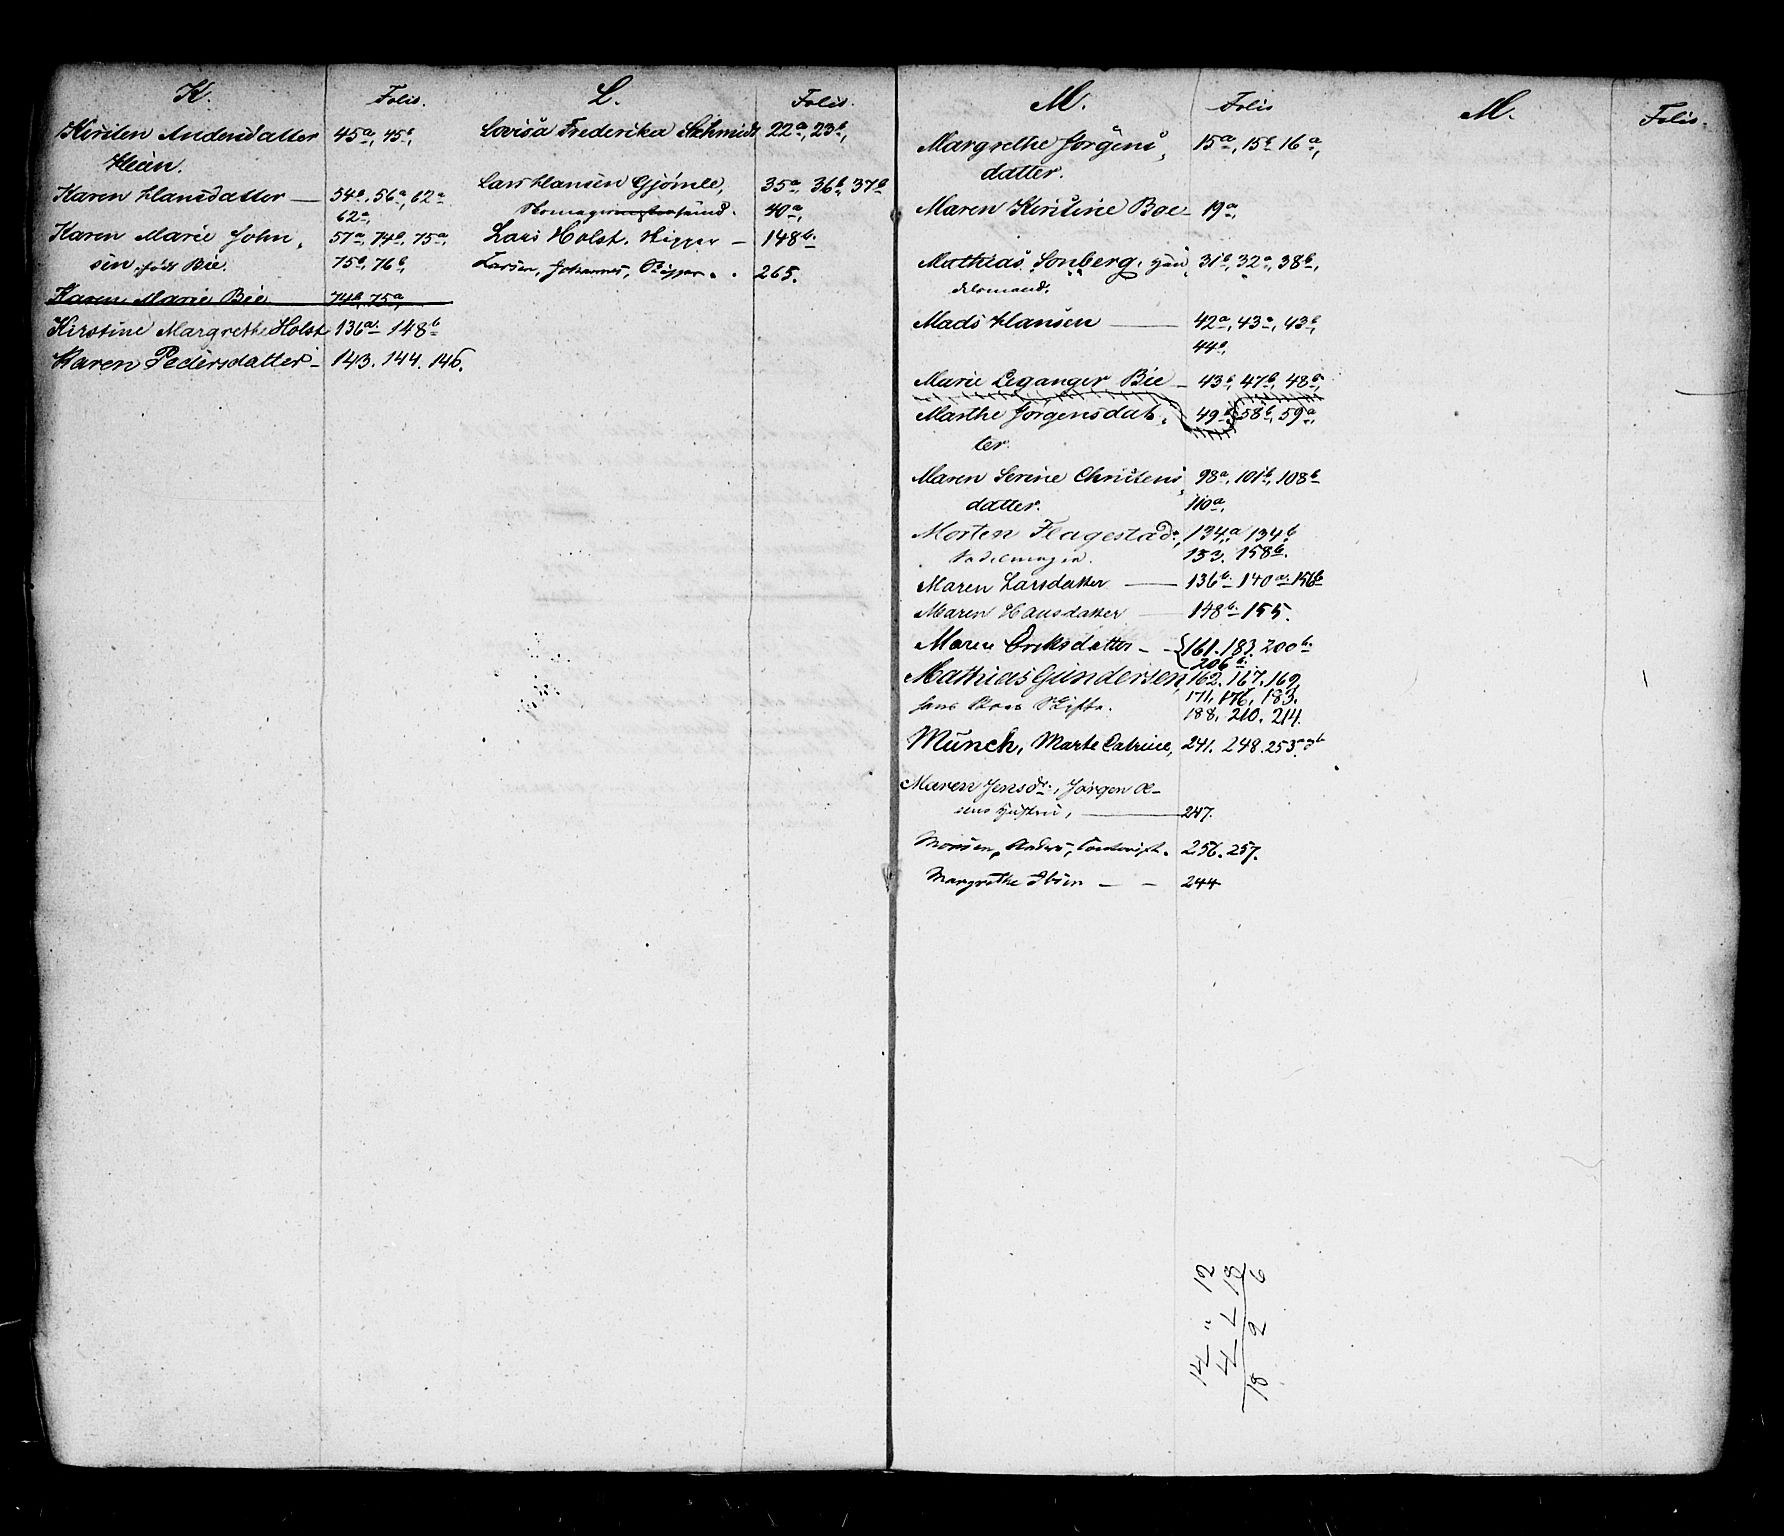 K.
Folio.
Kirsten Andersdatter 45a, 45b,
Klein.
Karen Hansdatter — 54b, 56a, 62a
62a,
Karen Marie John, 57a, 74b, 75a,
sen, født Bie. 75b, 76b,
Karen Marie Bie 74b, 75a
Kirstine Margrethe Holst 136a. 148b
Karen Pedersdatter – 143. 144. 146.
L.
Folio.
Lovisa Frederika Schmidt 22a, 23b,
Lars Hansen Gjömle, 35a, 36b, 37a
40a,
Lars Holst. Skipper – 148b.
Larsen, Johannes, Skipper. . 265.
M.
Folio
Margrethe Jørgens, 15a, 15b 16a,
datter.
Maren Kirstine Boe – 19a,
Mathias Sonberg, 31b, 32a, 38b,
Mads Hansen — 42a, 43a, 43b,
44b,
Marie Leganger Bie – 43b, 47b, 48a,
Marthe Jørgensdat, 49a 58b, 59a,
ter.
Maren Serine Christens, 98a, 101b, 108b
datter. 110a,
Morten Flagestad, 134a, 134b
153. 158b.
Maren Larsdatter — 136b. 140a. 156b
Maren Hansdatter — 148b. 155.
Maren Eriksdatter – – 161. 183. 200b.
206b.
Mathias Gundersen, 162. 167. 169.
171. 176, 183.
188, 210. 214.
Münch, Marte Catrine, 241. 248. 253a&b
Maren Jensdr., Jørgen Ol–
sens Hustru, — 247.
Monsen, Anders, 256. 257.
Margrethe Ibsen – – 244
M.
Folio.
14 " 12
4 7 18
18 2 6